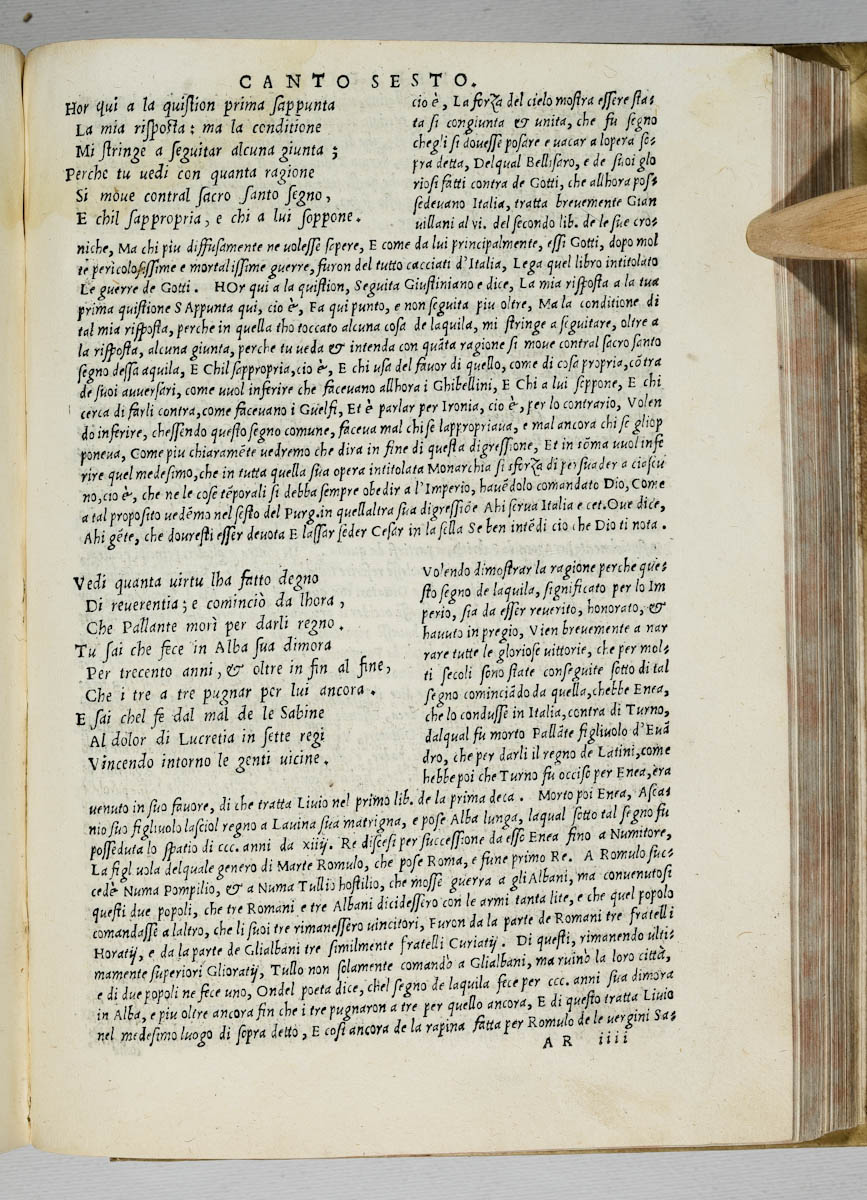 CANTO SESTO.
Hor qui a la quistion prima sappunta
La mia risposta: ma la conditione
Mi stringe a seguitar alcuna giunta;
Perche tu uedi con quanta ragione
Si moue contral sacro santo segno,
E chil sappropria, e chi a lui soppone.
cio è, La forza del cielo mostra essere sta-
ta si congiunta & unita, che fu segno
chegli si douesse posare e uacar a lopera so-
pra detta, Delqual Bellisaro, e de suoi glo
riosi fatti contra de Gotti, che allhora pos-
sedeuano Italia, tratta breuemente Gian
uillani al vi. del secondo lib. de le sue cro-
niche, Ma chi piu diffusamente ne uolesse sepere, E come da lui principalmente, essi Gotti, dopo mol
te pericolosissime e mortalissime guerre, furon del tutto cacciati d'Italia, Lega quel libro intitolato
Le guerre de Gotti. HOr qui a la quistion, Seguita Giustiniano e dice, La mia risposta a la tua
prima quistione SAppunta qui, cio è, Fa qui punto, e non seguita piu oltre, Ma la conditione di
tal mia risposta, perche in quella tho toccato alcuna cosa de laquila, mi stringe a seguitare, oltre a
la risposta, alcuna giunta, perche tu ueda & intenda con quāta ragione si moue contral sacro santo
segno dessa aquila, E Chil sappropria, cio è, E chi usa del fauor di quello, come di cosa propria, cōtra
de suoi auuersari, come uuol inferire che faceuano allhora i Ghibellini, E Chi a lui soppone, E chi
cerca di farli contra, come faceuano i Guelfi, Et è parlar per Ironia, cio è, per lo contrario, Volen
do inferire, chessendo questo segno comune, faceua mal chi se lappropriaua, e mal ancora chi se gliop
poneua, Come piu chiaramēte uedremo che dira in fine di questa digressione, Et in sōma uuol infe
rire quel medesimo, che in tutta quella sua opera intitolata Monarchia si sforza di persuader a ciascu
no, cio è, che ne le cose tēporali si debba sempre obedir a l'Imperio, hauēdolo comandato Dio, Come
a tal proposito uedēmo nel sesto del Purg. in quellaltra sua digressiōe Ahi serua Italia e cet. Oue dice,
Ahi gēte, che douresti esser deuota E lassar seder Cesar in la sella Se ben intēdi cio che Dio ti nota.
Vedi quanta uirtu lha fatto degno
Di reuerentia; e cominciò da lhora,
Che Pallante morì per darli regno.
Tu sai che fece in Alba sua dimora
Per trecento anni, & oltre in fin al fine,
Che i tre a tre pugnar per lui ancora.
E sai chel fè dal mal de le Sabine
Al dolor di Lucretia in sette regi
Vincendo intorno le genti uicine.
Volendo dimostrar la ragione perche que-
sto segno de laquila, significato per lo Im
perio, sia da esser reuerito, honorato, &
hauuto in pregio, Vien breuemente a nar
rare tutte le gloriose uittorie, che per mol-
ti secoli sono state conseguite sotto di tal
segno cominciādo da quella, chebbe Enea,
che lo condusse in Italia, contra di Turno,
dalqual fu morto Pallāte figliuolo d'Euā
dro, che per darli il regno de Latini, come
hebbe poi che Turno fu occiso per Enea, era
uenuto in suo fauore, di che tratta Liuio nel primo lib. de la prima deca. Morto poi Enea, Asca-
nio suo figliuolo lasciol regno a Lauina sua matrigna, e pose Alba lunga, laqual sotto tal segno fu
posseduta lo spatio di ccc. anni da xiiij. Re discesi per successione da esse Enea fino a Numitore,
La figl uola delquale genero di Marte Romulo, che pose Roma, e fune primo Re. A Romulo suc-
cedè Numa Pompilio, & a Numa Tullio hostilio, che mosse guerra a gli Albani, ma conuenutosi
questi due popoli, che tre Romani e tre Albani dicidessero con le armi tanta lite, e che quel popolo
comandasse a laltro, che li suoi tre rimanessero uincitori, Furon da la parte de Romani tre fratelli
Horatij, e da la parte de Glialbani tre similmente fratelli Curiatij. Di questi, rimanendo ulti-
mamente superiori Glioratij, Tullo non solamente comandò a Glialbani, ma ruinò la loro città,
e di due popoli ne fece uno, Ondel poeta dice, chel segno de laquila fece per ccc. anni sua dimora
in Alba, e piu oltre ancora fin che i tre pugnaron a tre per quello ancora, E di questo tratta Liuio
nel medesimo luogo di sopra detto, E cosi ancora de la rapina fatta per Romulo de le uergini Sa-
AR iiii